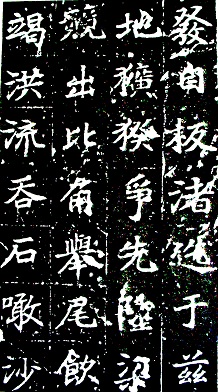 發自板渚迄于茲
地獷猴爭先陸梁
競出比角舉尾飲
竭洪流吞石噉沙